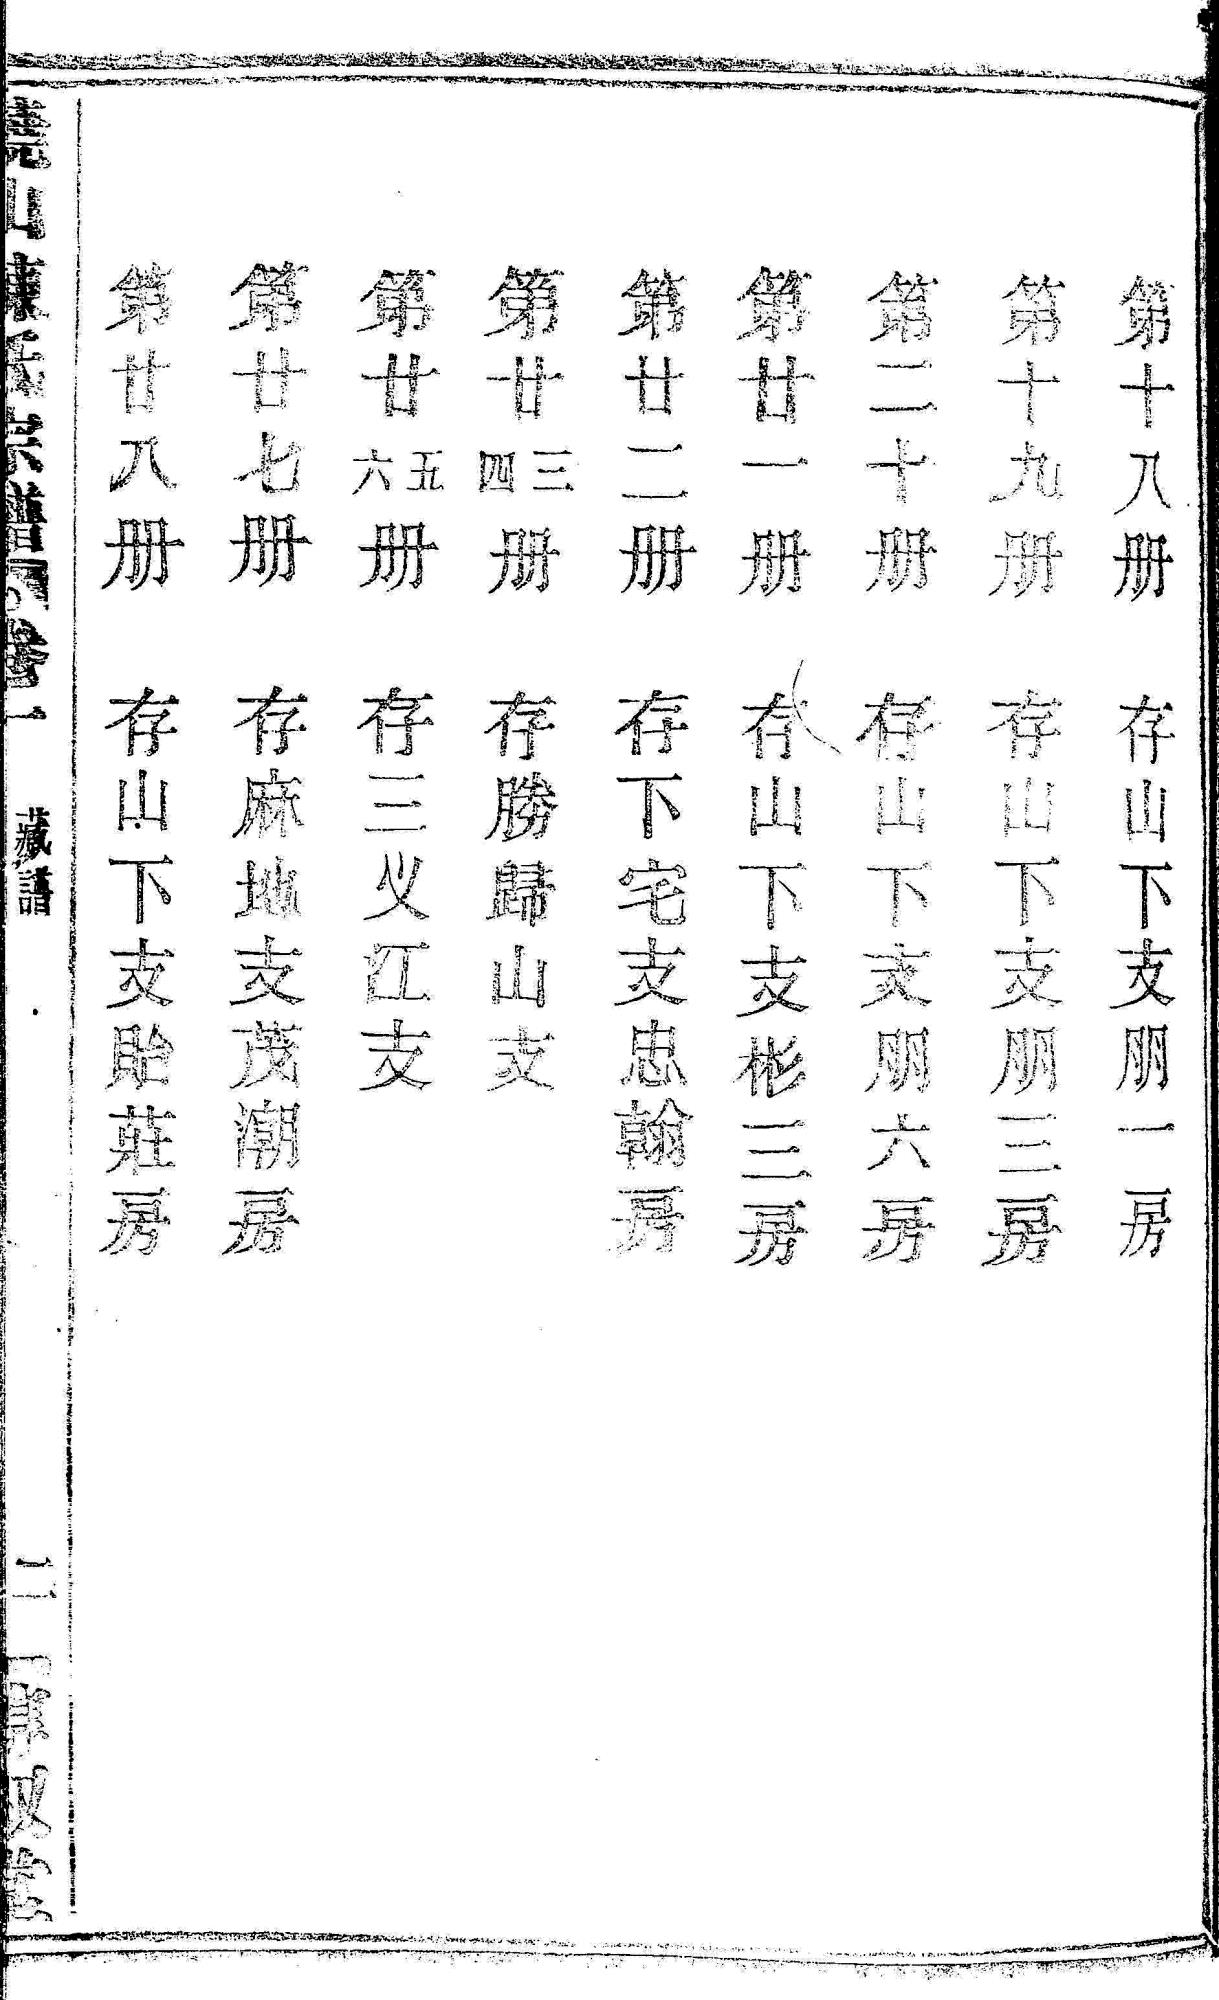 第十八册 存山下支朋一房
第十九册 存山下支朋三房
第二十册 存山下支朋六房
第廿一册 存山下支彬三房
第廿二册 存下宅支忠翰房
第廿三四册 存勝歸山支
第廿五六册 存三义江支
第廿七册 存麻地支茂潮房
第廿八册 存山下支貽莊房
山 氏宗譜 卷一 藏譜 二